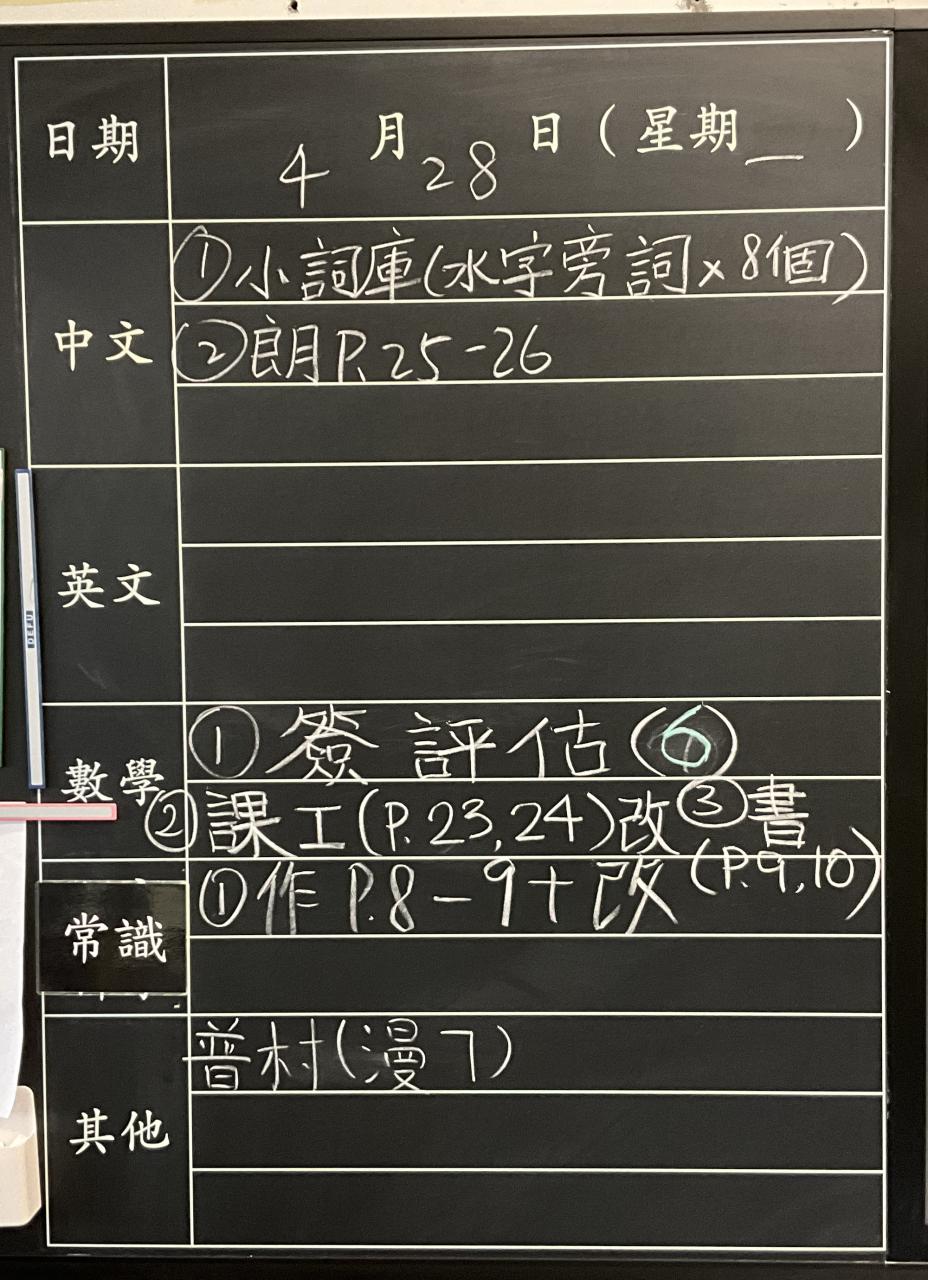 日期 4月28日(星期一)
中文
①小詞庫(水字旁詞×8個)
②朗P.25-26
英文
數學
①簽評估(6)
②課工(P.23,24)改 ③書(P.9,10)
常識
①作P.8-9+改
其他
普村(漫7)
DEFU